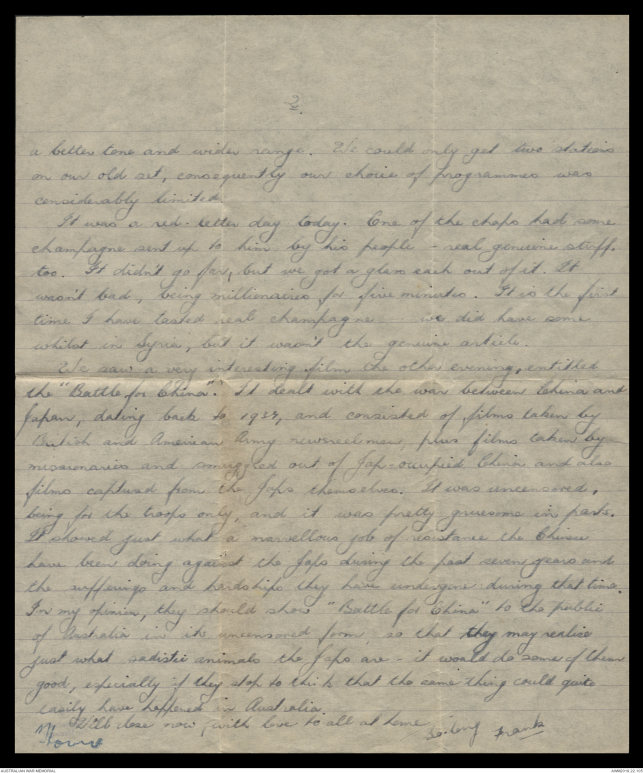 2.
a better tone and wider range. We could only get two stations
on our old set, consequently our choice of programmes was
considerably limited.
It was a red-letter day today. One of the chaps had some
champagne sent up to him by his people - real genuine stuff,
too. It didn't go far, but we got a glass each out of it. It
wasn't bad, being millionaires for five minutes. It is the first
time I have tasted real champagne - we did have some
whilst in Syria, but it wasn't the genuine article.
We saw a very interesting film the other evening, entitled
the "Battle for China". It dealt with the war between China and
Japan, dating back to 1937, and consisted of films taken by
British and American Army newsreel men, plus films taken by
missionaries and smuggled out of Jap-occupied China and also
films captured from the Japs themselves. It was uncensored,
being for the troops only, and it was pretty gruesome in parts.
It showed just what a marvellous job of resistance the Chinese
have been doing against the Japs during the past seven years and
the sufferings and hardships they have undergone during that time.
In my opinion, they should show "Battle for China" to the public
of Australia in its uncensored form, so that they may realise
just what sadistic animals the Japs are - it would do some of them
good, especially if they stop to think that the same thing could quite
easily have happened in Australia.
I'll close now, with love to all at home
So-long Frank
AUSTRALIAN WAR MEMORIAL